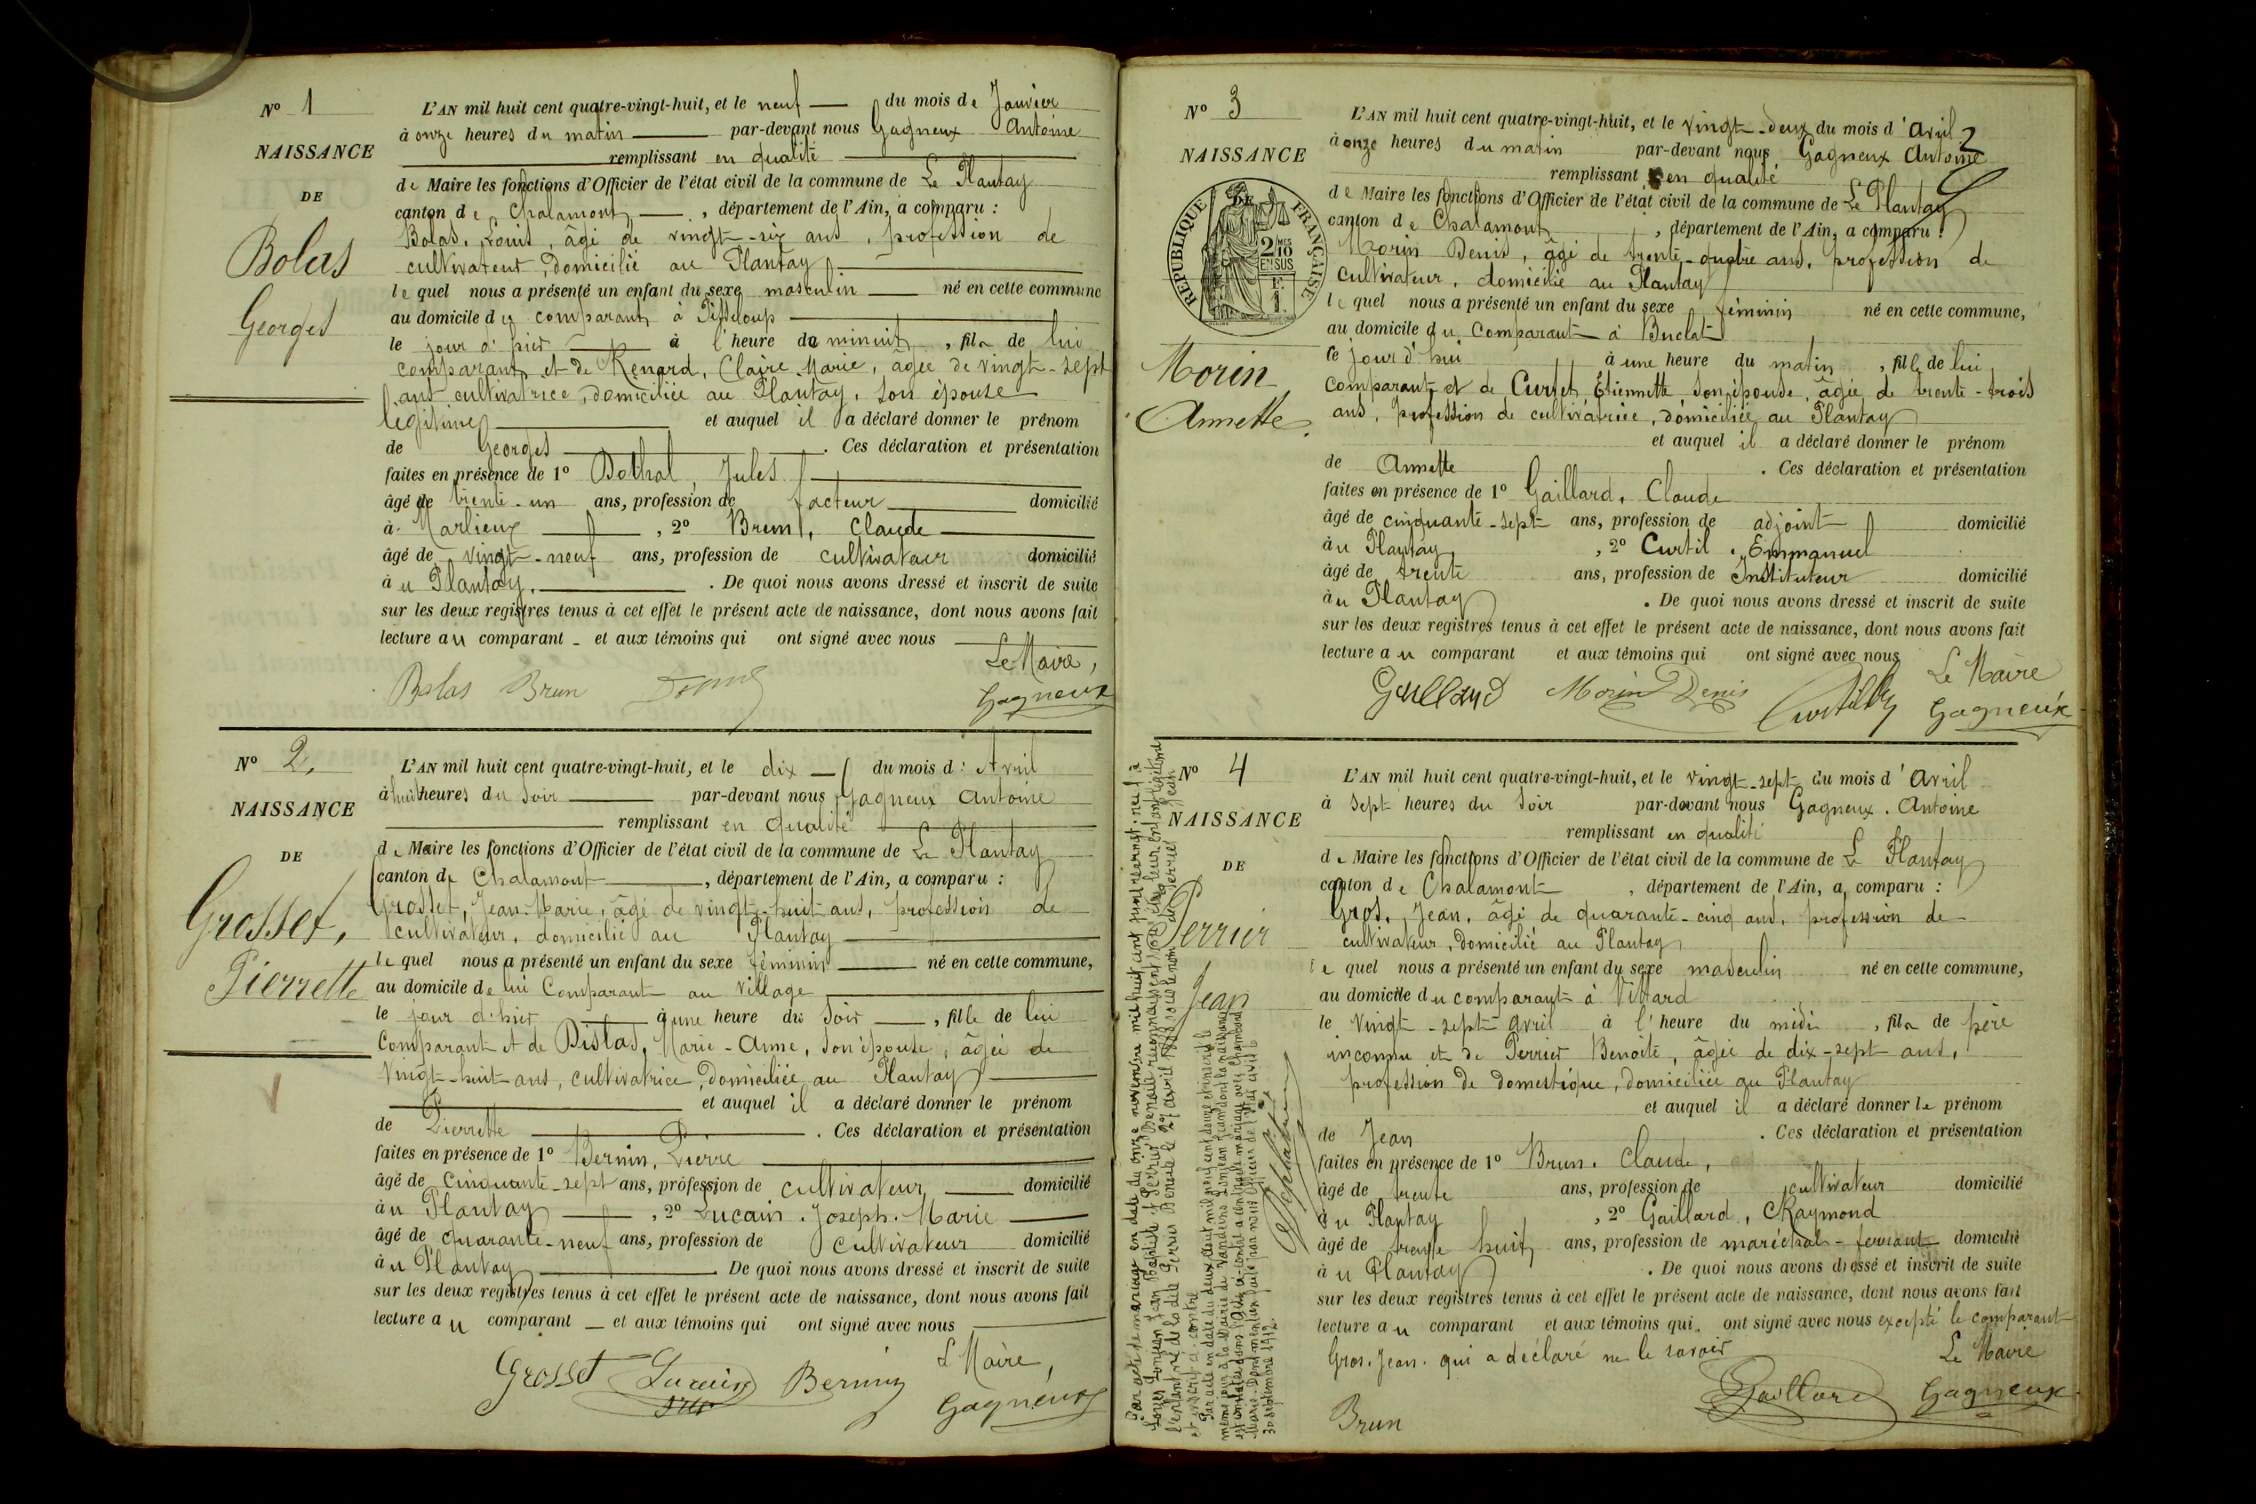 N° 1
NAISSANCE
DE
Bolas
Georges
L'AN mil huit cent quatre-vingt-huit, et le neuf du mois de Janvier
à onze heures du matin par-devant nous Gagneux Antoine
remplissant en qualité
de Maire les fonctions d'Officier de l'état civil de la commune de Le Plantay
canton de Chalamont, département de l'Ain, a comparu :
Bolas, Louis, âgé de vingt-six ans, profession de
cultivateur, domicilié au Plantay
le quel nous a présenté un enfant du sexe masculin né en cette commune
au domicile du comparant à Pisseloup
le jour d'hier à l'heure de minuit, fils de lui
comparant et de Renard, Claire Marie, âgée de vingt-sept
ans cultivatrice, domiciliée au Plantay, son épouse
légitime et auquel il a déclaré donner le prénom
de Georges. Ces déclaration et présentation
faites en présence de 1° Jules
âgé de trente-un ans, profession de facteur domicilié
à Marlieux, 2° Brun, Claude
âgé de vingt-neuf ans, profession de cultivateur domicilié
à u Plantay. De quoi nous avons dressé et inscrit de suite
sur les deux registres tenus à cet effet le présent acte de naissance, dont nous avons fait
lecture au comparant et aux témoins qui ont signé avec nous
Le Maire,
Bolas Brun Gagneux
N° 2
NAISSANCE
DE
Grosset,
Pierrette
L'AN mil huit cent quatre-vingt-huit, et le dix du mois d'Avril
à huit heures du soir par-devant nous Gagneux Antoine
remplissant en qualité
de Maire les fonctions d'Officier de l'état civil de la commune de Le Plantay
canton de Chalamont, département de l'Ain, a comparu :
Grosset, Jean-Marie, âgé de vingt-huit ans, profession de
cultivateur, domicilié au Plantay
le quel nous a présenté un enfant du sexe féminin né en cette commune,
au domicile de lui Comparant au village
le jour d'hier à une heure du soir, fille de lui
Comparant et de Marie-Anne, son épouse, âgée de
vingt-huit ans, cultivatrice, domiciliée au Plantay
et auquel il a déclaré donner le prénom
de Pierrette. Ces déclaration et présentation
faites en présence de 1° Bernin, Pierre
âgé de cinquante-sept ans, profession de cultivateur domicilié
à u Plantay, 2° Lucain. Joseph. Marie
âgé de quarante-neuf ans, profession de cultivateur domicilié
à u Plantay. De quoi nous avons dressé et inscrit de suite
sur les deux registres tenus à cet effet le présent acte de naissance, dont nous avons fait
lecture au comparant et aux témoins qui ont signé avec nous
L Maire,
Grosset Lucain Bernin Gagneux
N° 3
NAISSANCE
DE
RÉPUBLIQUE FRANÇAISE
2/10 EN SUS
Morin
Annette
2
L'AN mil huit cent quatre-vingt-huit, et le vingt-deux du mois d'avril
à onze heures du matin par-devant nous Gagneux Antoine
remplissant en qualité
de Maire les fonctions d'Officier de l'état civil de la commune de Le Plantay
canton de Chalamont, département de l'Ain, a comparu :
Morin Denis, âgé de trente-quatre ans, profession de
cultivateur, domicilié au Plantay
le quel nous a présenté un enfant du sexe féminin né en cette commune,
au domicile du Comparant à Buclat
le jour d'hui à une heure du matin, fille de lui
comparant et de Curtet, Étiennette, son épouse, âgée de trente-trois
ans, profession de cultivatrice, domiciliée au Plantay
et auquel il a déclaré donner le prénom
de Annette. Ces déclaration et présentation
faites en présence de 1° Gaillard, Claude
âgé de cinquante-sept ans, profession de adjoint domicilié
à u Plantay, 2° Curtil, Emmanuel
âgé de trente ans, profession de Instituteur domicilié
à u Plantay. De quoi nous avons dressé et inscrit de suite
sur les deux registres tenus à cet effet le présent acte de naissance, dont nous avons fait
lecture au comparant et aux témoins qui ont signé avec nous
Le Maire
Gaillard Morin Denis Curtil Gagneux
N° 4
NAISSANCE
DE
Perrier
Jean
L'AN mil huit cent quatre-vingt-huit, et le vingt-sept du mois d'avril
à sept heures du soir par-devant nous Gagneux. Antoine
remplissant en qualité
de Maire les fonctions d'Officier de l'état civil de la commune de Le Plantay
canton de Chalamont, département de l'Ain, a comparu :
Gros, Jean, âgé de quarante-cinq ans, profession de
cultivateur, domicilié au Plantay
le quel nous a présenté un enfant du sexe masculin né en cette commune,
au domicile du comparant à Villard
le vingt-sept avril à l'heure du midi, fils de père
inconnu et de Perrier Benoite, âgée de dix-sept ans,
profession de domestique, domiciliée au Plantay
et auquel il a déclaré donner le prénom
de Jean. Ces déclaration et présentation
faites en présence de 1° Brun. Claude,
âgé de trente ans, profession de cultivateur domicilié
à u Plantay, 2° Gaillard, Raymond
âgé de trente huit ans, profession de maréchal-ferrant domicilié
à u Plantay. De quoi nous avons dressé et inscrit de suite
sur les deux registres tenus à cet effet le présent acte de naissance, dont nous avons fait
lecture au comparant et aux témoins qui ont signé avec nous excepté le comparant
Gros. Jean. qui a déclaré ne le savoir
Le Maire
Brun Gaillard Gagneux
Par acte de mariage en date du onze novembre mil huit cent
30 septembre 1912